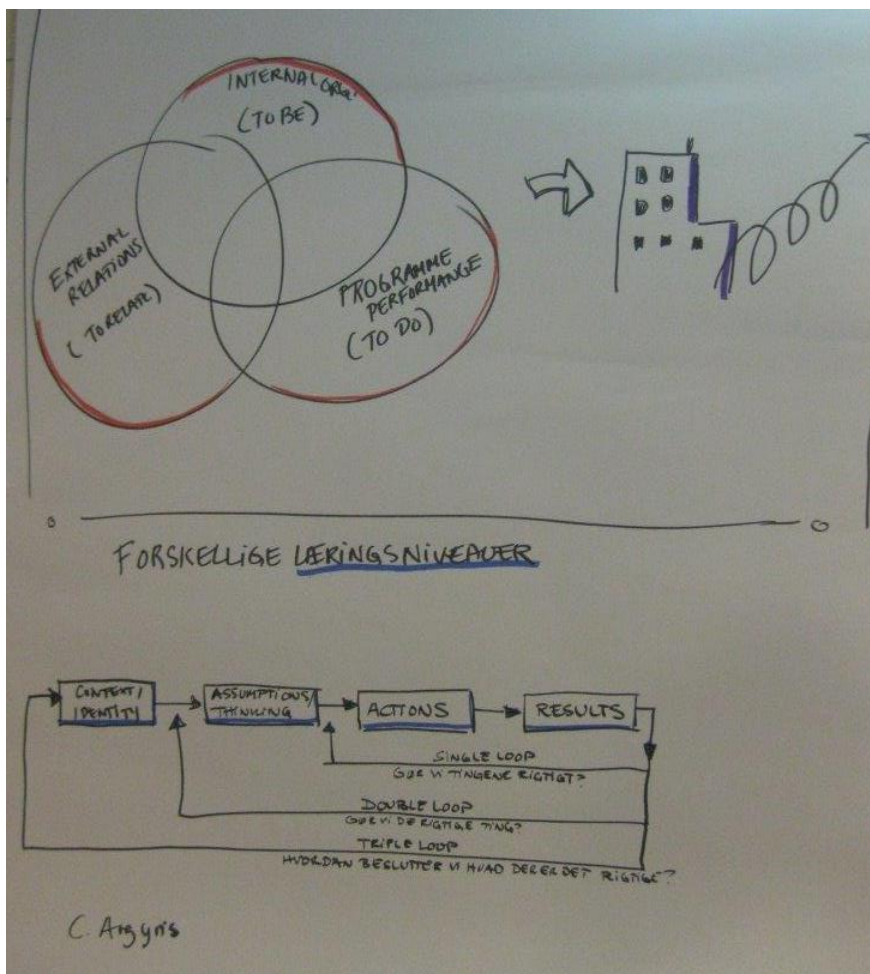 INTERNAL ORG.
(TO BE)
EXTERNAL
RELATIONS
(TO RELATE)
PROGRAMME
PERFORMANCE
(TO DO)
FORSKELLIGE LÆRINGSNIVEAUER
CONTEXT/
IDENTITY
ASSUMPTIONS/
THINKING
ACTIONS
RESULTS
SINGLE LOOP
GØR VI TINGENE RIGTIGT?
DOUBLE LOOP
GØR VI DE RIGTIGE TING?
TRIPLE LOOP
HVORDAN BESLUTTER VI HVAD DER ER DET RIGTIGE?
C. Argyris